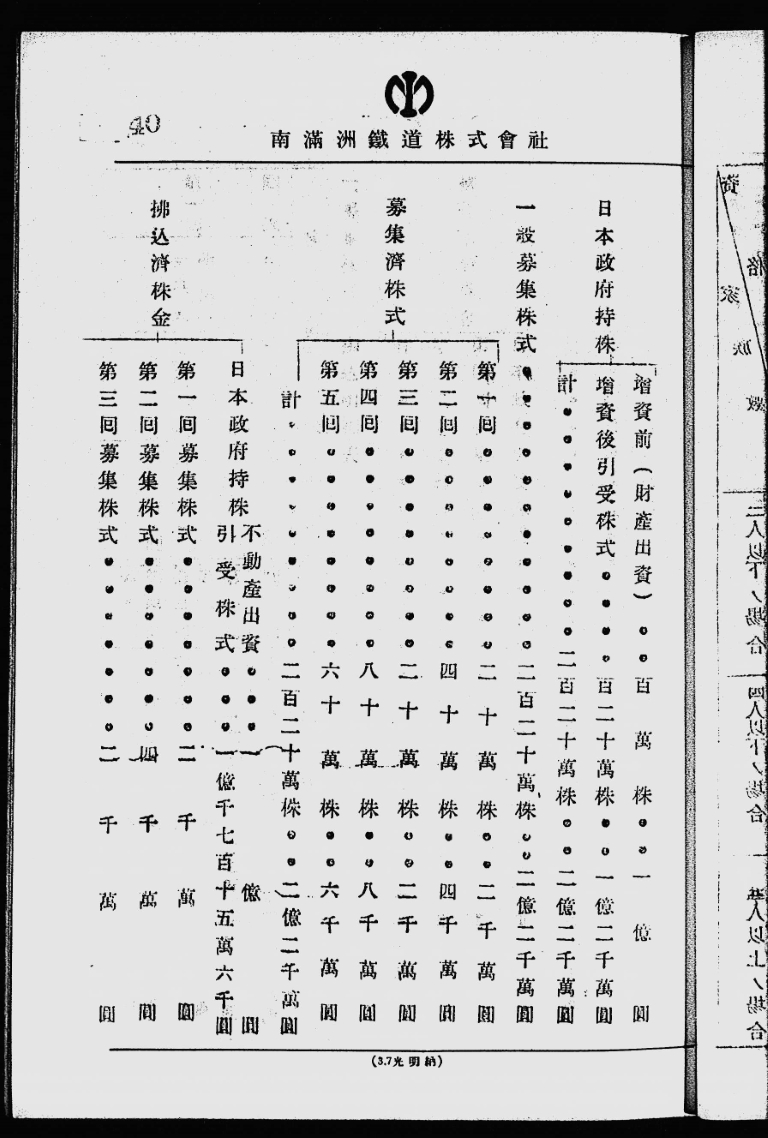 40
南滿洲鐵道株式會社
日本政府持株
增資前(財產出資)・・百萬株・・一億圓
增資後引受株式・・・・百二十萬株・・一億二千萬圓
計・・・・・・・・・二百二十萬株・・二億二千萬圓
一般募集株式・・・・・・・・・・・二百二十萬株・・二億二千萬圓
募集濟株式
第一回・・・・・・・・二十萬株・・二千萬圓
第二回・・・・・・・・四十萬株・・四千萬圓
第三回・・・・・・・・二十萬株・・二千萬圓
第四回・・・・・・・・八十萬株・・八千萬圓
第五回・・・・・・・・六十萬株・・六千萬圓
計・・・・・・・・・二百二十萬株・・二億二千萬圓
拂込濟株金
日本政府持株
不動產出資・・・一億圓
引受株式・・・一億千七百十五萬六千圓
第一回募集株式・・・・・・・二千萬圓
第二回募集株式・・・・・・・四千萬圓
第三回募集株式・・・・・・・二千萬圓
(3.7光明納)
資格
家族數
二人以下ノ場合
四人以下ノ場合
人以上ノ場合